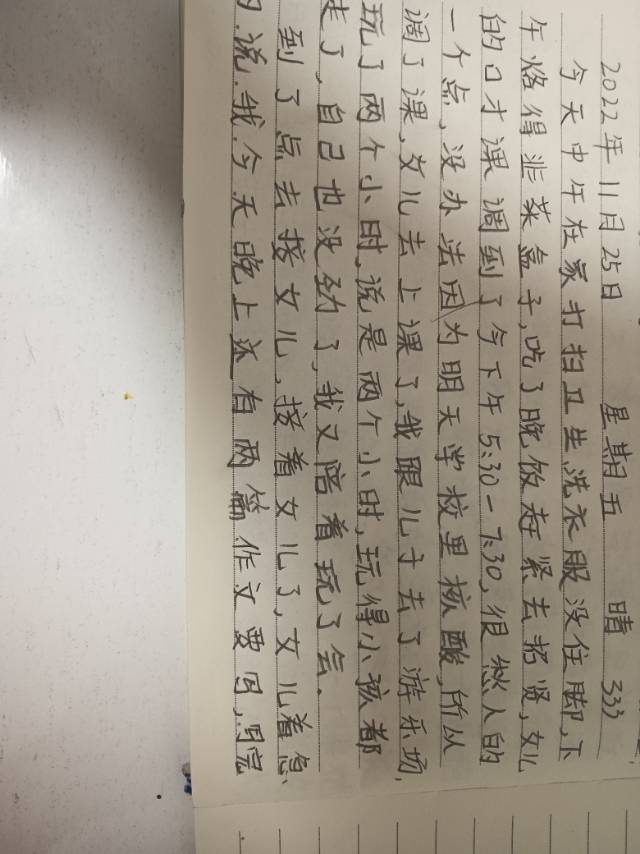 2022年11月25日 星期五 晴 333
今天中午在家打扫卫生,洗衣服没住脚,下
午烙得韭菜盒子,吃了晚饭赶紧去招贤,女儿
的口才课调到了今下午5:30-7:30,很愁人的
一个点,没办法因为明天学校里核酸,所以
调了课,女儿去上课了,我跟儿子去了游乐场,
玩了两个小时,说是两个小时,玩得小孩都
走了,自己也没劲了,我又陪着玩了会.
到了点去接女儿,接着女儿了,女儿着急
的说.我今天晚上还有两篇作文要写,写完